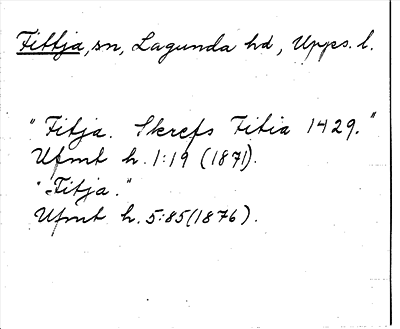 Fittja, sn, Lagunda hd, Upps. l.
"Fitja. Skrefs Fitia 1429."
Ufmt h. 1:19 (1871).
"Fitja."
Ufmt h. 5:85 (1876).